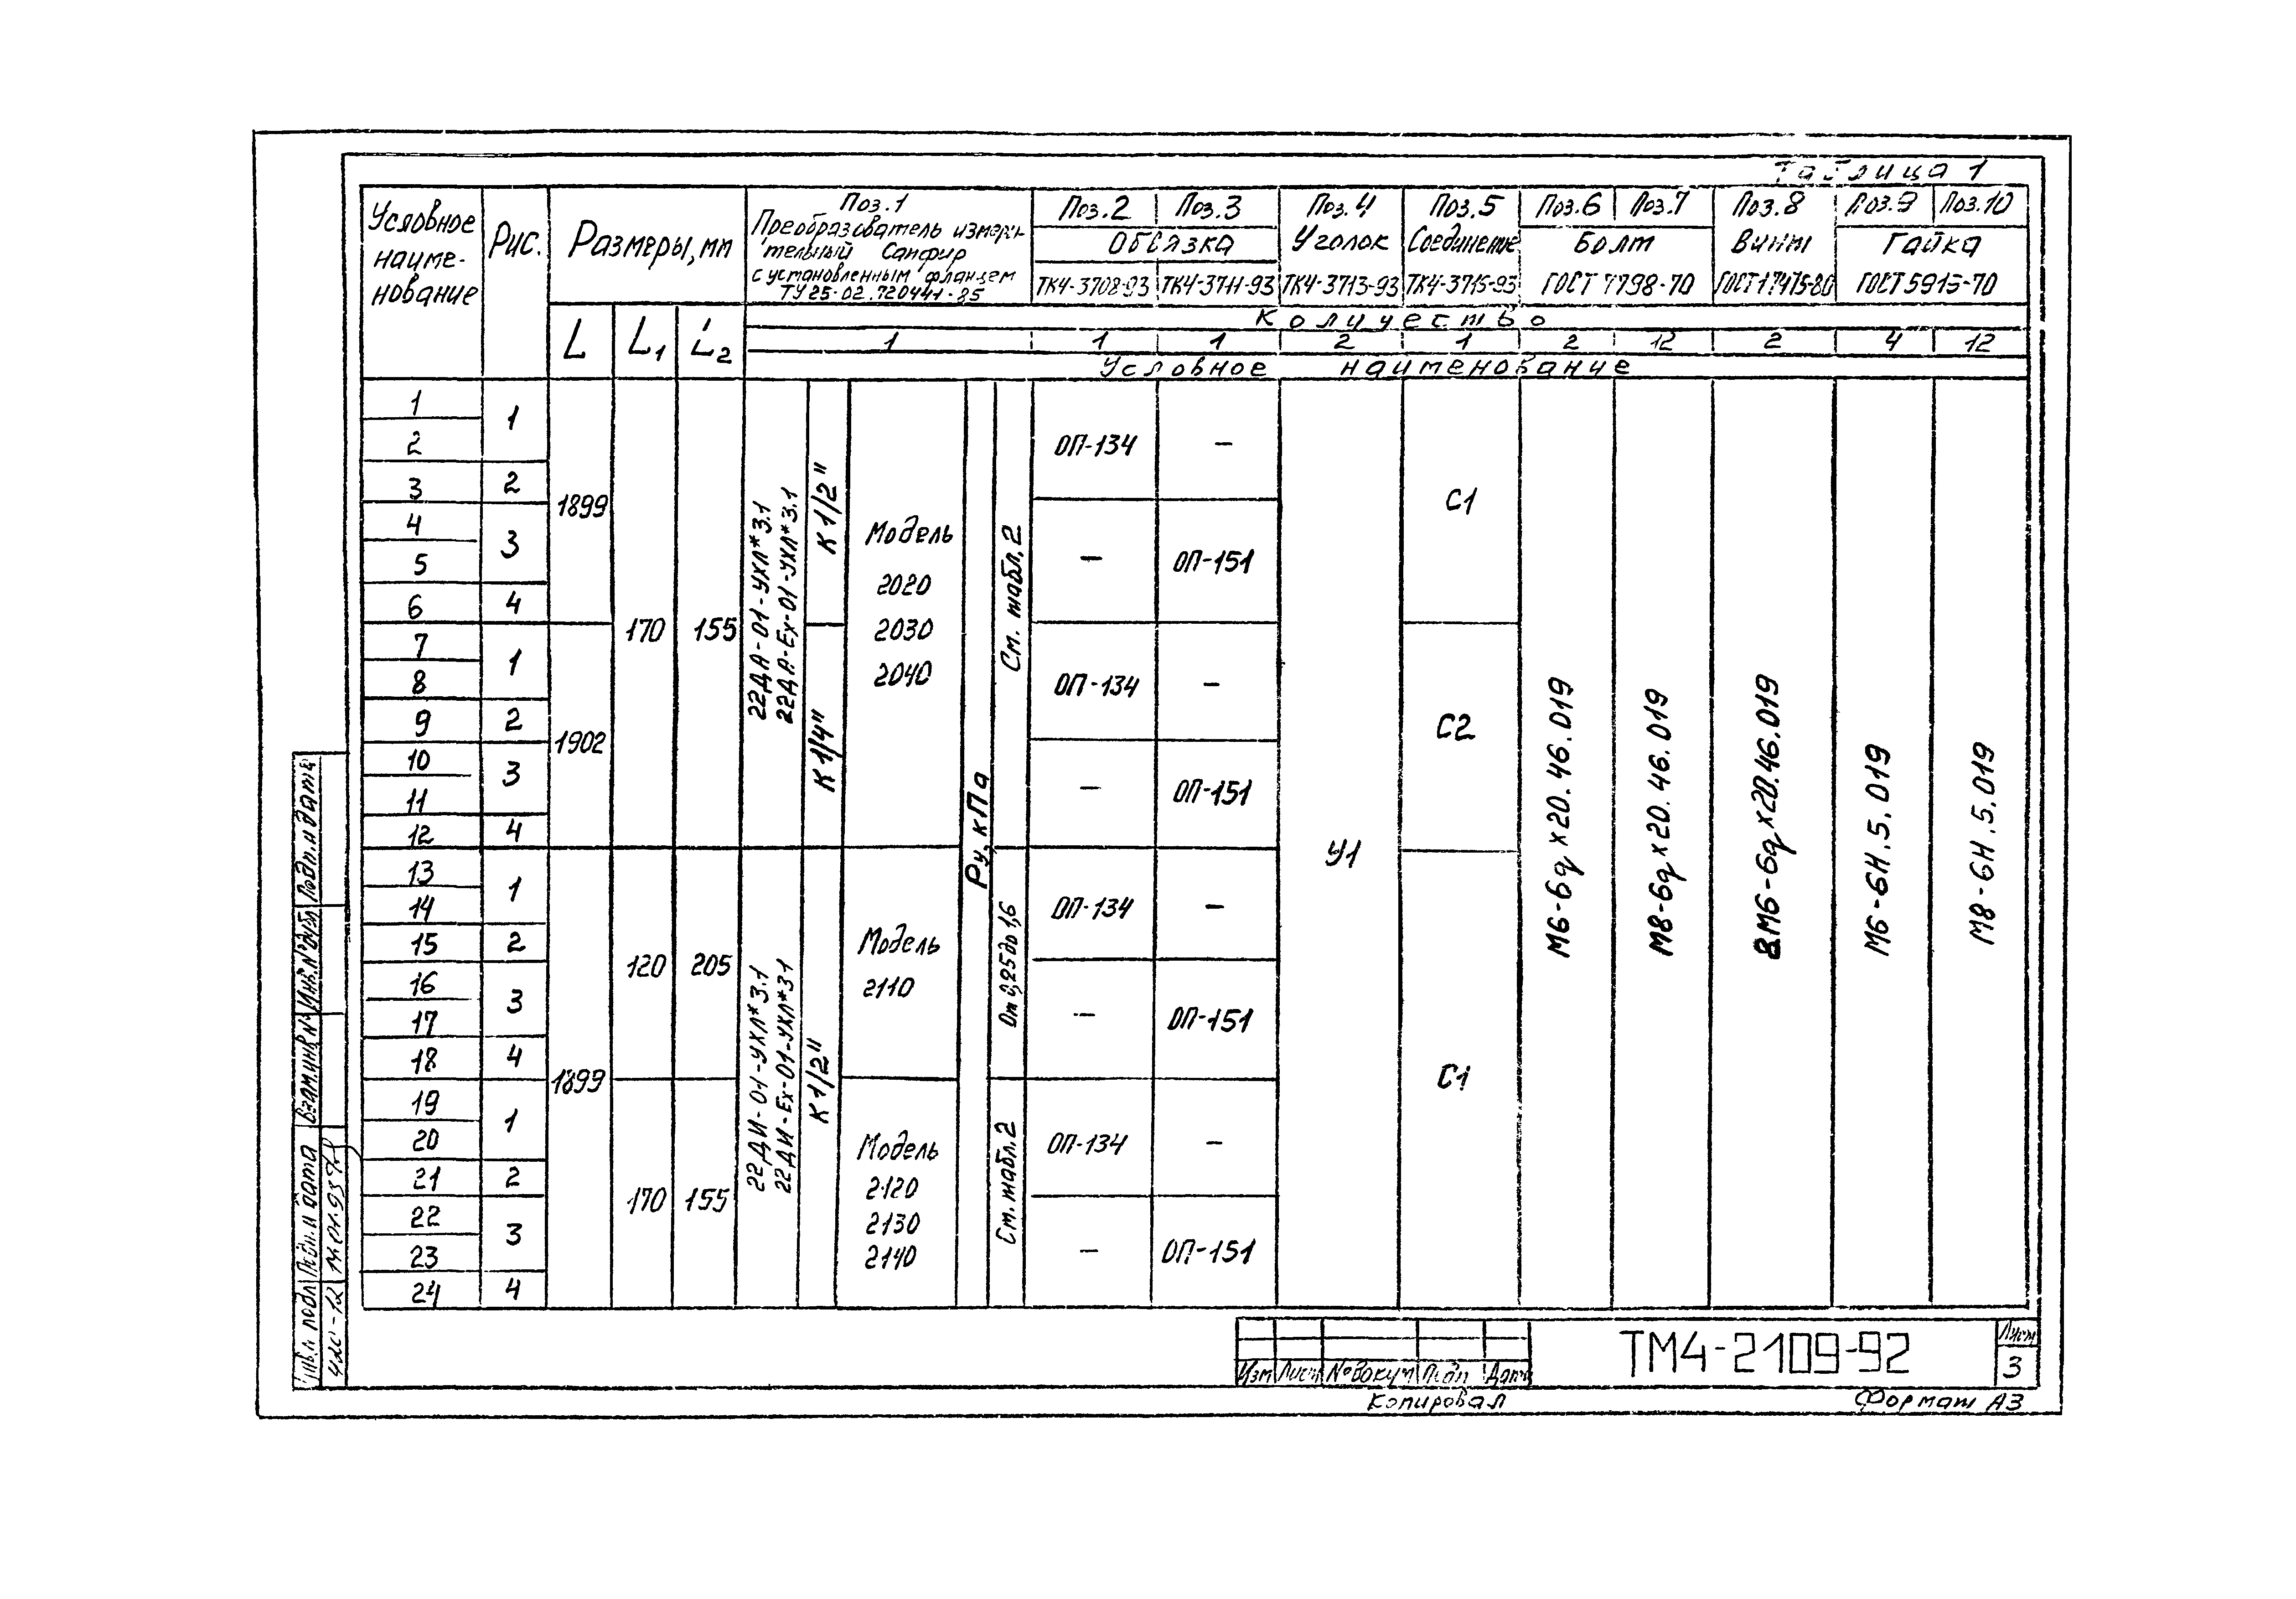 Таблица 1
Условное наиме-нование
Рис.
Размеры, мм
Поз.1
Преобразователь измери-
тельный Сапфир
с установленным фланцем
ТУ 25-02.720441-85
Поз.2 Поз.3 Поз.4 Поз.5 Поз.6 Поз.7 Поз.8 Поз.9 Поз.10
Обвязка Уголок Соединение Болт Винт Гайка
ТК4-3708-93 ТК4-3711-93 ТК4-3713-93 ТК4-3715-93 ГОСТ 7798-70 ГОСТ 17475-80 ГОСТ 5915-70
L L1 L2
Количество
1 1 1 2 1 2 12 2 4 12
Условное наименование
1
2
3
4
5
6
7
8
9
10
11
12
13
14
15
16
17
18
19
20
21
22
23
24
1
2
3
4
1
2
3
4
1
2
3
4
1
2
3
4
1899
1902
1899
170
120
170
155
205
155
22ДА-01-УХЛ*3.1
22ДА-Ех-01-УХЛ*3.1
22ДИ-01-УХЛ*3.1
22ДИ-Ех-01-УХЛ*3.1
К 1/2"
К 1/4"
К 1/2"
Модель
2020
2030
2040
Модель
2110
Модель
2120
2130
2140
Ру, кПа
См. табл. 2
От 0,25 до 1,6
См. табл. 2
ОП-134 –
– ОП-151
ОП-134 –
– ОП-151
ОП-134 –
– ОП-151
ОП-134 –
– ОП-151
У1
С1
С2
С1
М6-6gх20.46.019
М8-6gх20.46.019
В.М6-6gх20.46.019
М6-6Н.5.019
М8-6Н.5.019
Подп. и дата
Инв.№дубл
Взам.инв№
Подп. и дата
14.01.93
Инв.№ подл
Изм Лист №докум Подп Дата
ТМ4-2109-92
Лист
3
Копировал
Формат А3